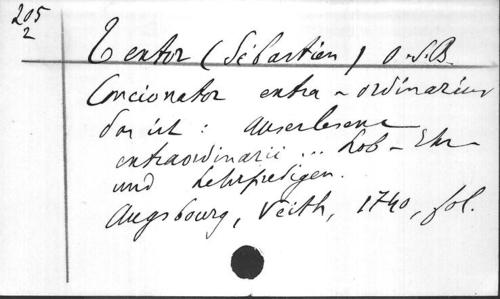 205
2
Textor (Sébastien) O.S.B.
Concionator extra-ordinarius
das ist : Auserlesene
extraordinarii ... Lob- Ehr-
und Lehrpredigen.
Augsbourg, Veith, 1740, fol.